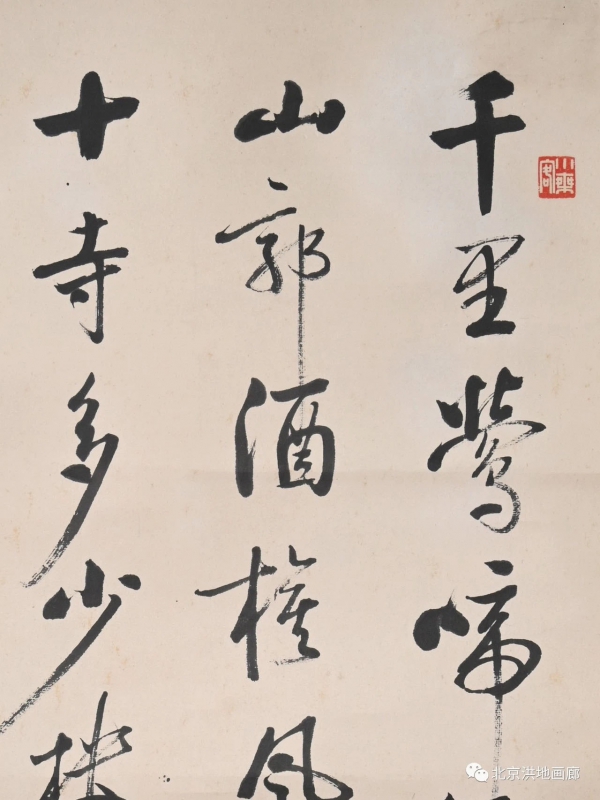 千里鶯啼
山郭酒旗风
十寺多少楼
北京洪地画廊